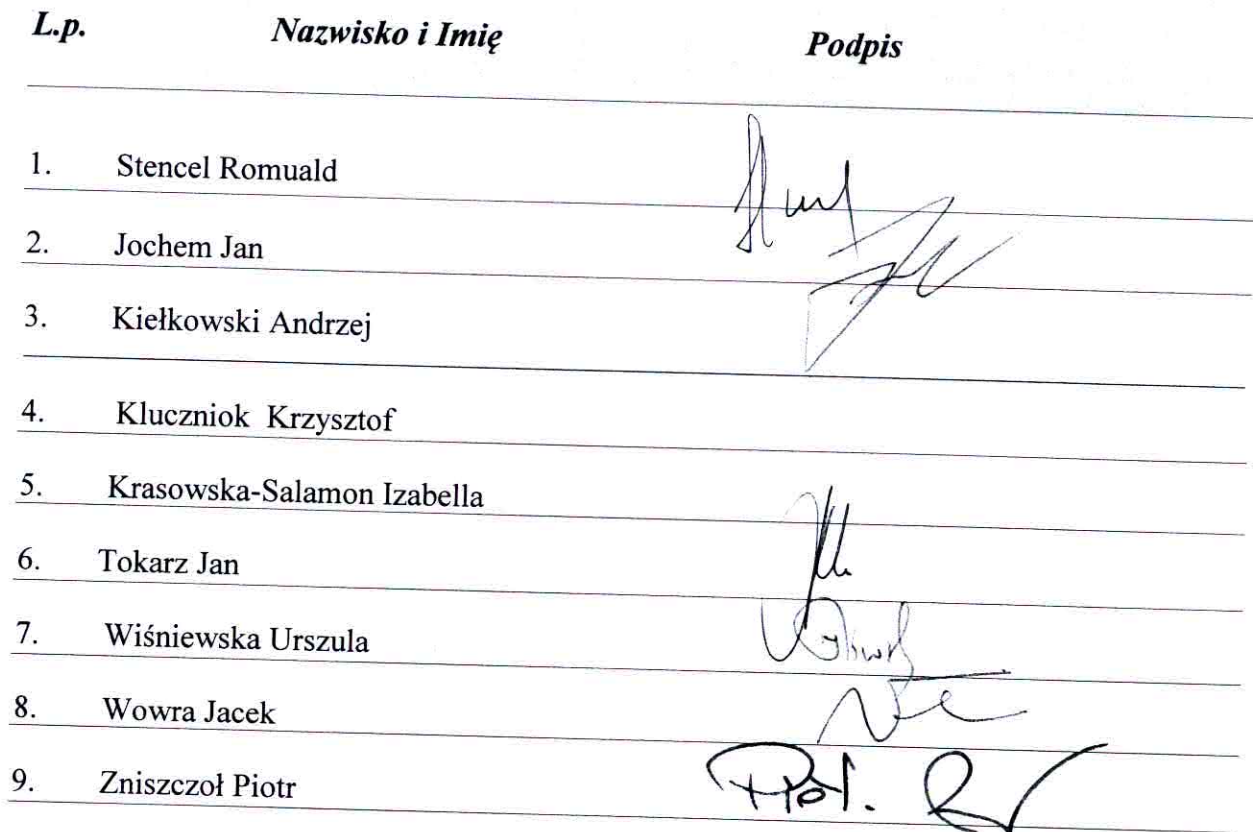 L.p. Nazwisko i Imię Podpis
1. Stencel Romuald
2. Jochem Jan
3. Kiełkowski Andrzej
4. Kluczniok Krzysztof
5. Krasowska-Salamon Izabella
6. Tokarz Jan
7. Wiśniewska Urszula
8. Wowra Jacek
9. Zniszczoł Piotr